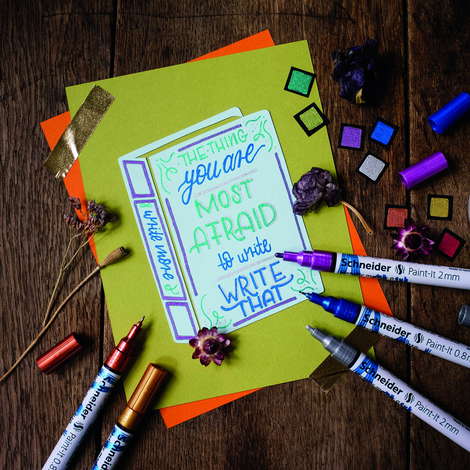 THE THING
you are
MOST
AFRAID
to write
WRITE
THAT
write more
Schneider Paint-It 2mm
Schneider Paint-It 0.8m
Schneider Paint-It 2mm